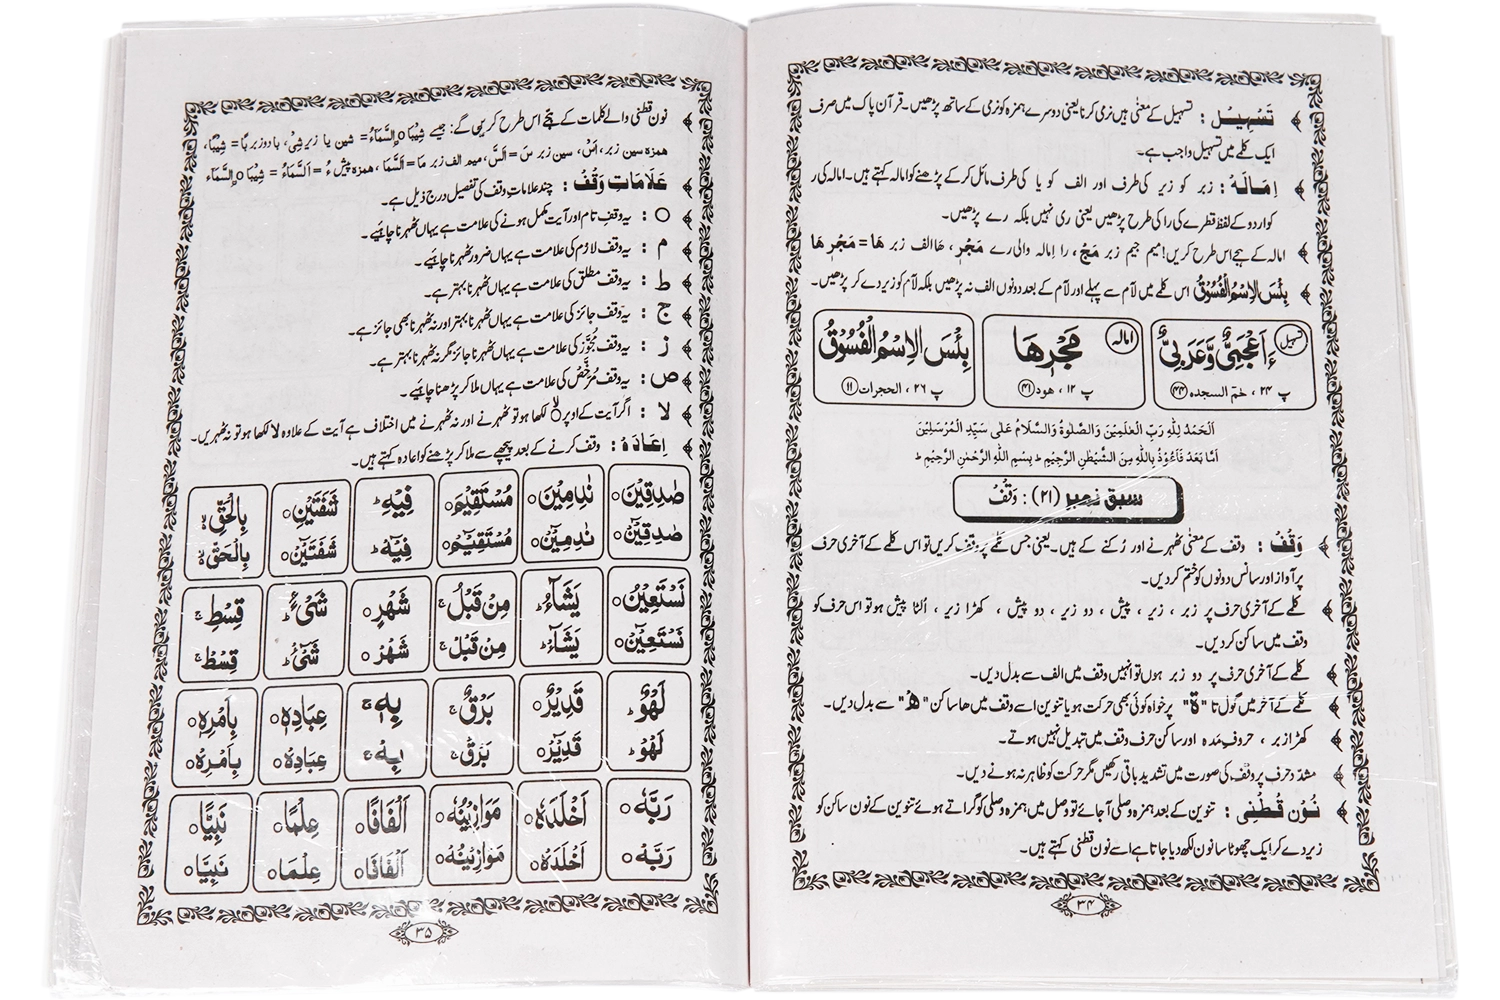 تَسْہِیْل : تسہیل کے معنٰی ہیں نرمی کرنا یعنی دوسرے ہمزہ کو نرمی کے ساتھ پڑھیں۔ قرآن پاک میں صرف
ایک کلمے میں تسہیل واجب ہے۔
اِمَالَہ : زبر کو زیر کی طرف اور الف کو یا کی طرف مائل کر کے پڑھنے کو امالہ کہتے ہیں۔ امالہ کی ر
کو اردو کے لفظ قطرے کی را کی طرح پڑھیں یعنی ری نہیں بلکہ رے پڑھیں۔
امالہ کے ہجے اس طرح کریں! میم جیم زبر مَجْ ، را اِمالہ والی رے مَجْرٖ ، ھَا الف زبر ھَا = مَجْرٖ ھَا
بِئْسَ الِاسْمُ الْفُسُوْقُ اس کلمے میں لاَم سے پہلے اور لاَم کے بعد دونوں الف نہ پڑھیں بلکہ لاَم کو زیر دے کر پڑھیں۔
تسہیل
ءَاَعْجَمِیٌّ وَّعَرَبِیٌّ
پ ۲۴ ، حٰمٓ السجدہ (۴۴)
امالہ
مَجْرٖىهَا
پ ۱۲ ، ھود (۴۱)
بِئْسَ الِاسْمُ الْفُسُوْقُ
پ ۲۶ ، الحجرات (۱۱)
اَلْحَمْدُ لِلّٰهِ رَبِّ الْعٰلَمِيْنَ وَالصَّلٰوةُ وَالسَّلَامُ عَلٰی سَيِّدِ الْمُرْسَلِيْنَ
اَمَّا بَعْدُ فَاَعُوْذُ بِاللّٰهِ مِنَ الشَّيْطٰنِ الرَّجِيْمِ ؕ بِسْمِ اللّٰهِ الرَّحْمٰنِ الرَّحِيْمِ ؕ
سبق نمبر (۲۱) : وَقْفْ
وَقْفْ : وقف کے معنٰی ٹھہرنے اور رُکنے کے ہیں۔ یعنی جس کلمے پر وقف کریں تو اس کلمے کے آخری حرف
پر آواز اور سانس دونوں کو ختم کردیں۔
کلمے کے آخری حرف پر زبر ، زیر ، پیش ، دو زیر ، دو پیش ، کھڑا زیر ، اُلٹا پیش ہو تو اس حرف کو
وقف میں ساکن کردیں۔
کلمے کے آخری حرف پر دو زبر ہوں تو انہیں وقف میں الف سے بدل دیں۔
کلمے کے آخر میں گول تا "ة" پر خواہ کوئی بھی حرکت ہو یا تنوین اسے وقف میں ھا ساکن "هْ" سے بدل دیں۔
کھڑا زبر ، حروفِ مدہ اور ساکن حرف وقف میں تبدیل نہیں ہوتے۔
مشدّد حرف پر وقف کی صورت میں تشدید باقی رکھیں مگر حرکت کو ظاہر نہ ہونے دیں۔
نُوْن قُطْنِی : تنوین کے بعد ہمزہ وصلی آجائے تو وصل میں ہمزہ وصلی کو گراتے ہوئے تنوین کے نون ساکن کو
زیر دے کر ایک چھوٹا سا نون لکھ دیا جاتا ہے اسے نون قطنی کہتے ہیں۔
۳۴
نون قطنی والے کلمات کے ہجے اس طرح کریں گے: جیسے شِیْبَا ۣالسَّمَآءُ = شین یا زیر شِیْ، با دو زبر بًا = شِیْبًا،
ہمزہ سین زبر اَسْ، سین زبر سَ = اَلسَّ، میم الف زبر مَا = اَلسَّمَا، ہمزہ پیش ءُ = اَلسَّمَآءُ = شِیْبَا ۣالسَّمَآءُ
عَلَامَاتِ وَقْفْ : چند علاماتِ وقف کی تفصیل درج ذیل ہے۔
○ : یہ وقفِ تام اور آیت مکمل ہونے کی علامت ہے یہاں ٹھہرنا چاہئیے۔
م : یہ وقف لازم کی علامت ہے یہاں ضرور ٹھہرنا چاہئیے۔
ط : یہ وقف مطلق کی علامت ہے یہاں ٹھہرنا بہتر ہے۔
ج : یہ وقف جائز کی علامت ہے یہاں ٹھہرنا بہتر اور نہ ٹھہرنا بھی جائز ہے۔
ز : یہ وقف مُجَوَّز کی علامت ہے یہاں ٹھہرنا جائز مگر نہ ٹھہرنا بہتر ہے۔
ص : یہ وقف مُرَخَّص کی علامت ہے یہاں ملا کر پڑھنا چاہئیے۔
لَا : اگر آیت کے اوپر لا لکھا ہو تو ٹھہرنے اور نہ ٹھہرنے میں اختلاف ہے آیت کے علاوہ لا لکھا ہو تو نہ ٹھہریں۔
اِعَادَہ : وقف کرنے کے بعد پیچھے سے ملا کر پڑھنے کو اعادہ کہتے ہیں۔
صٰدِقِیْنَ○ نٰدِمِیْنَ○ مُسْتَقِیْمٍ○ فِیْهِؕ شَفَتَیْنِ○ بِالْحَقِّ
صٰدِقِیْنْ○ نٰدِمِیْنْ○ مُسْتَقِیْمْ○ فِیْهْؕ شَفَتَیْنْ○ بِالْحَقّْ
نَسْتَعِیْنُ○ یَشَآءُؕ مِنْ قَبْلُۚ شَهْرٍ○ شَیْءٍؕ قِسْطِۚ
نَسْتَعِیْنْ○ یَشَآءْؕ مِنْ قَبْلْۚ شَهْرْ○ شَیْءْؕ قِسْطْۚ
لَهْوٌؕ قَدِیْرٌ○ بَرْقٌۚ بِهٖۚ عِبَادِهٖ○ بِاَمْرِهٖ○
لَهْوْؕ قَدِیْرْ○ بَرْقْۚ بِهْۚ عِبَادِهْ○ بِاَمْرِهْ○
رَبَّهٗ○ اَخْلَدَهٗ○ مَوَازِیْنُهٗ○ اَلْفَافًا○ عِلْمًا○ نَبِیًّا○
رَبَّهْ○ اَخْلَدَهْ○ مَوَازِیْنُهْ○ اَلْفَافَا○ عِلْمَا○ نَبِیَّا○
۳۵